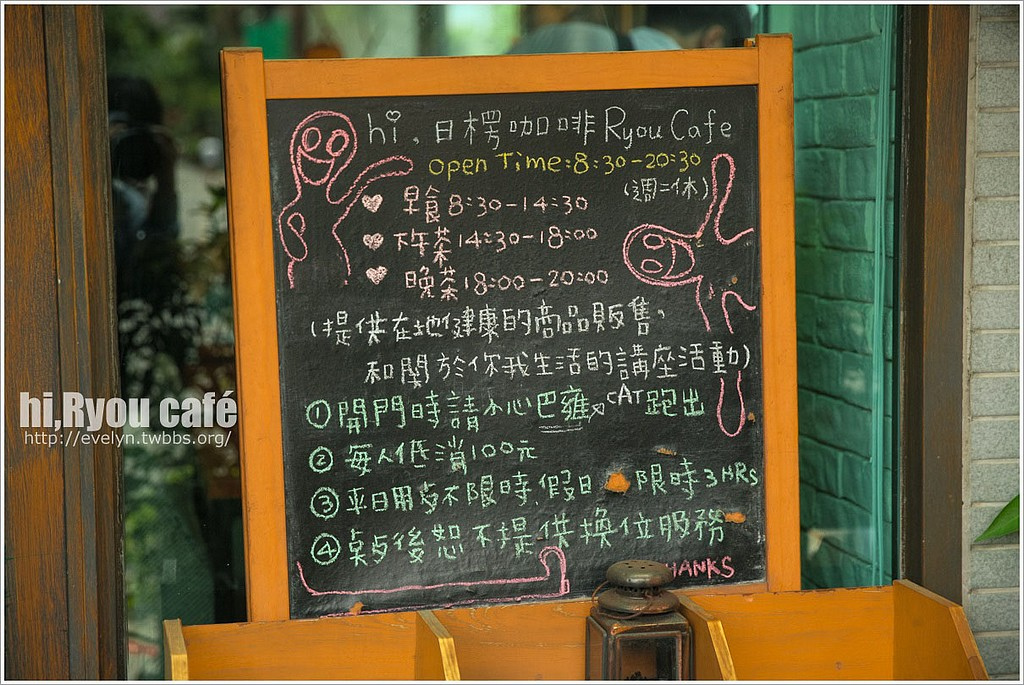 hi,日楞咖啡Ryou Cafe
Open Time:8:30-20:30
(週二休)
早食8:30-14:30
下午茶14:30-18:00
晚茶18:00-20:00
(提供在地健康的商品販售,
和關於你我生活的講座活動)
①開門時請小心巴雍CAT跑出
②每人低消100元
③平日用歺不限時,假日限時3HRs
④點後恕不提供換位服務
HANKS
hi,Ryou café
http://evelyn.twbbs.org/